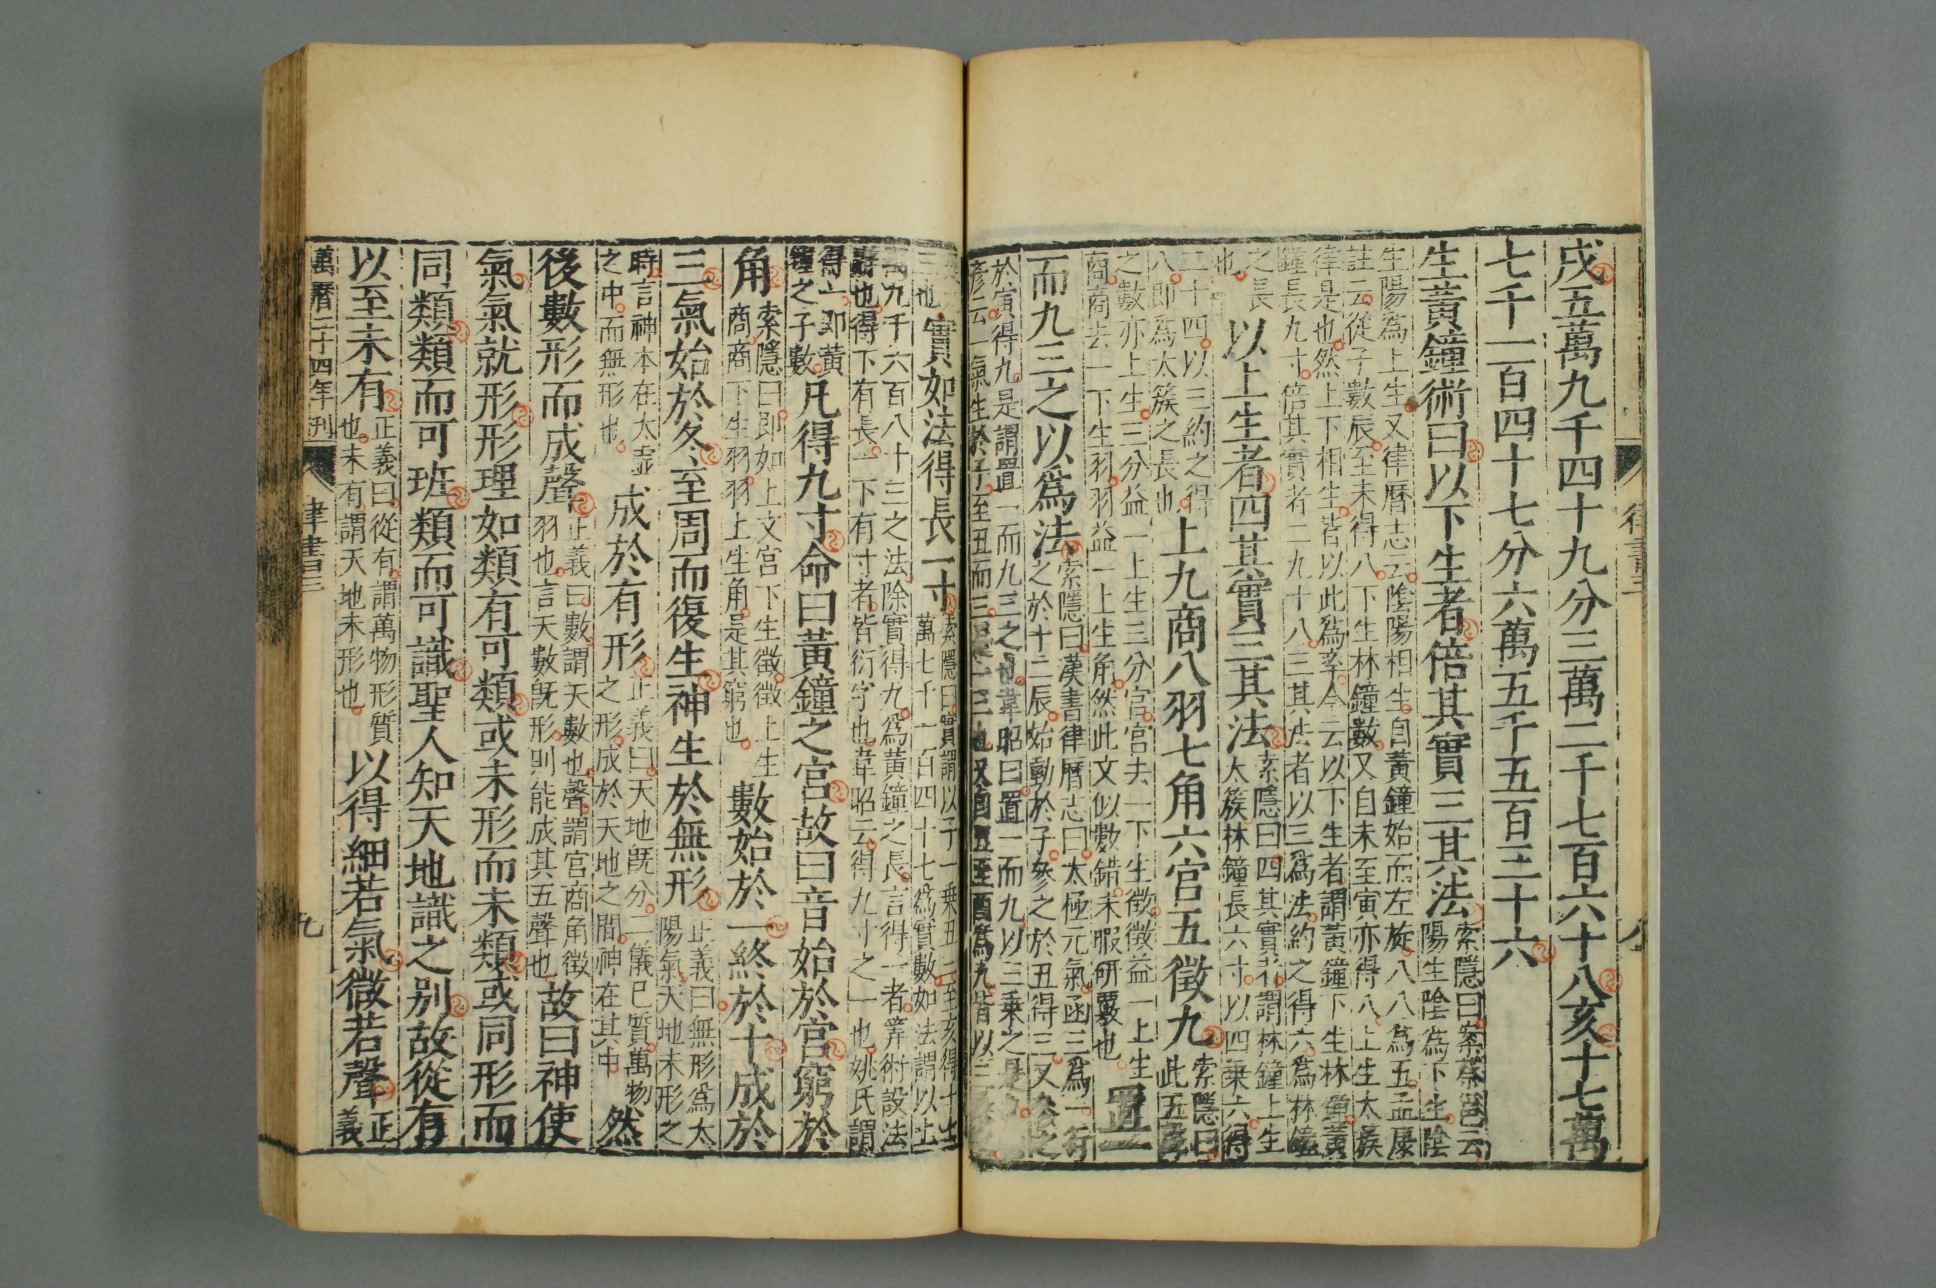 戌五萬九千四十九分三萬二千七百六十八亥十七萬
七千一百四十七分六萬五千五百三十六
生黃鐘術曰以下生者倍其實三其法索隱曰案蔡邕云陽生陰為下生陰
生陽為上生又律曆志云陰陽相生自黃鐘始而左旋八八為五孟康
註云從子數辰至未得八下生林鐘數又自未至寅亦得八上生太蔟
律是也然上下相生皆以此為率今云以下生者謂黃鐘下生林鐘黃
鐘長九寸倍其實者二九十八三其法者以三為法約之得六為林鐘
之長也以上生者四其實三其法索隱曰四其實者謂林鐘上生太蔟林鐘長六寸以四乘六得
二十四以三約之得八即為太蔟之長也上九商八羽七角六宮五徵九索隱曰此五聲
之數亦上生三分益一上生三分宮宮去一下生徵徵益一上生
商商去一下生羽羽益一上生角然此文似數錯未暇研覈也置一
而九三之以為法索隱曰漢書律曆志曰太極元氣函三為一行之於十二辰始動於子參之於丑得三又參之
於寅得九是謂置一而九三之也韋昭曰置一而九以三乘之是
彥云一氣生於子至丑而三是一三也又自丑至酉為九皆以三
三也實如法得長一寸索隱曰實謂以子一乘丑三至亥得十七萬七千一百四十七為實數如法謂以上
萬九千六百八十三之法除實得九為黃鐘之長言得一者筭術設法
辭也得下有長一下有寸者皆衍字也韋昭云得九寸之一也姚氏謂
得一即黃鐘之子數凡得九寸命曰黃鐘之宮故曰音始於宮窮於
角索隱曰即如上文宮下生徵徵上生商商下生羽羽上生角是其窮也數始於一終於十成於
三氣始於冬至周而復生神生於無形正義曰無形為太陽氣天地未形之
時言神本在太虛之中而無形也成於有形正義曰天地既分二儀已質萬物之形成於天地之間神在其中然
後數形而成聲正義曰數謂天數也聲謂宮商角徵羽也言天數既形則能成其五聲也故曰神使
氣氣就形形理如類有可類或未形而未類或同形而
同類類而可班類而可識聖人知天地識之別故從有
以至未有正義曰從有謂萬物形質也未有謂天地未形也以得細若氣微若聲正義
萬曆二十四年刊 律書三 九